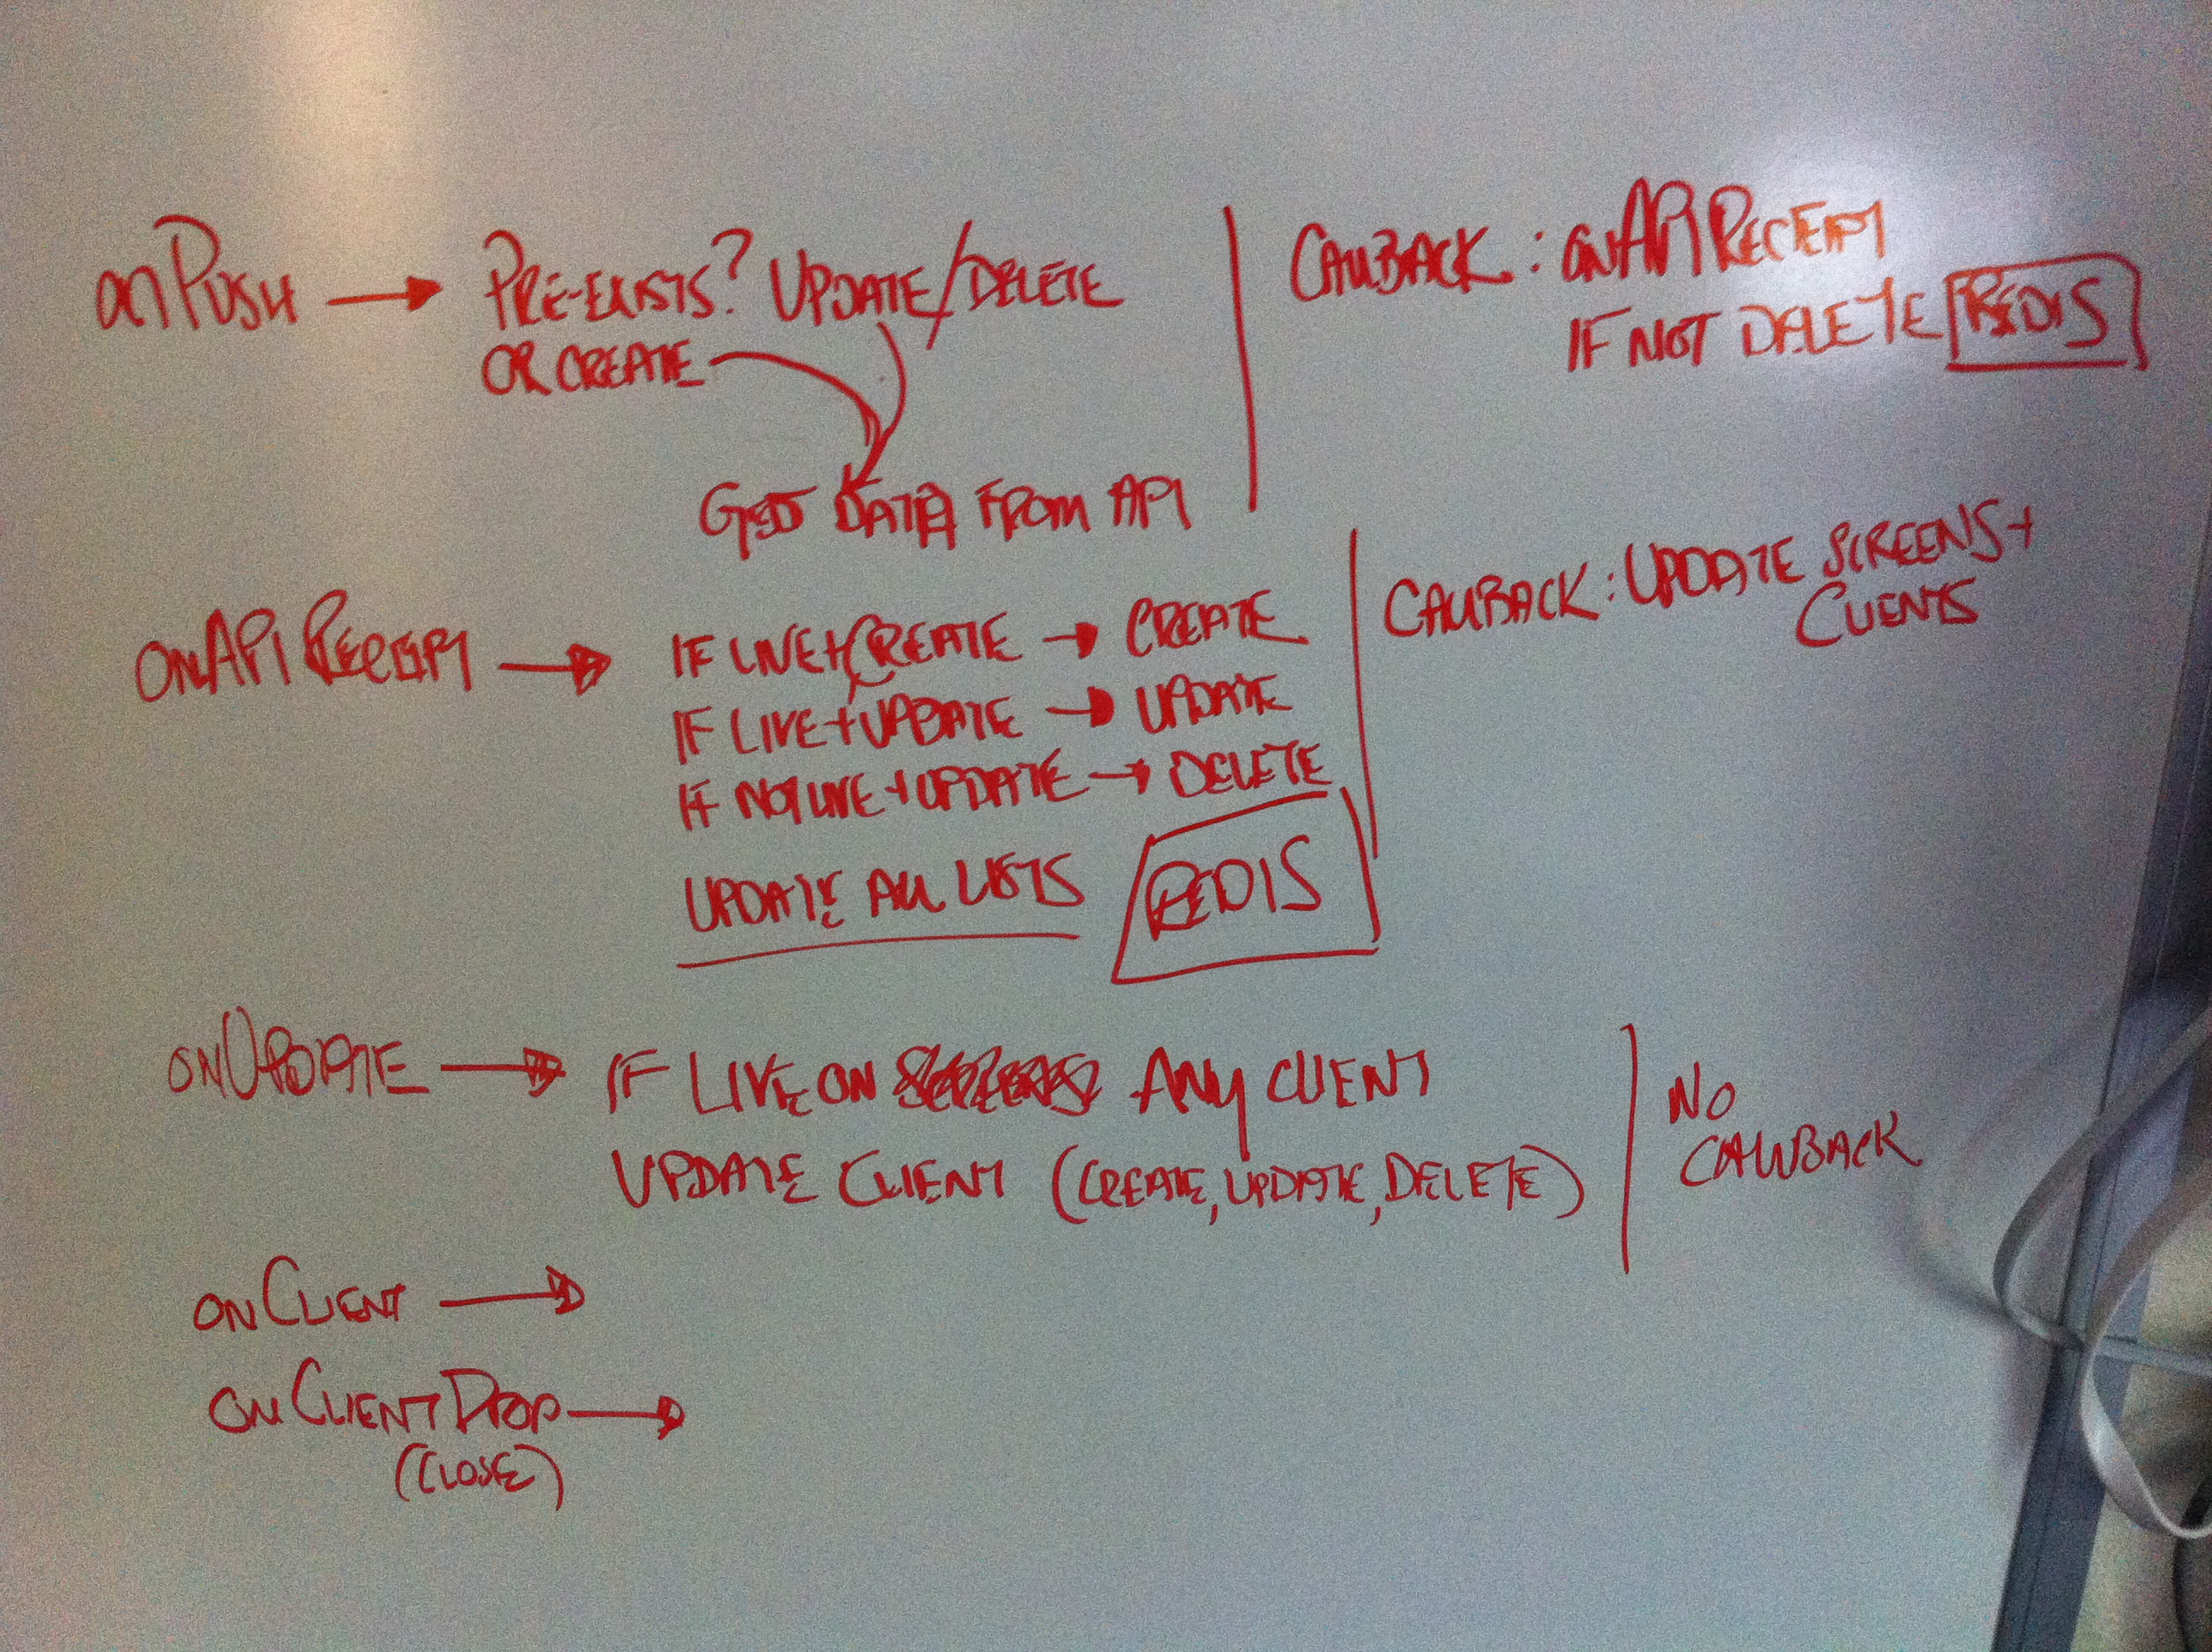 onPush → PRE-EXISTS? UPDATE/DELETE
OR CREATE
GET DATA FROM API
CALLBACK: onAPI RECEIPT
IF NOT DELETE REDIS
onAPI RECEIPT → IF LIVE + CREATE → CREATE
IF LIVE + UPDATE → UPDATE
IF NOT LIVE + UPDATE → DELETE
UPDATE ALL LISTS REDIS
CALLBACK: UPDATE SCREENS +
CLIENTS
onUPDATE → IF LIVE ON ANY CLIENT
UPDATE CLIENT (CREATE, UPDATE, DELETE)
NO
CALLBACK
onCLIENT →
onCLIENT DROP →
(CLOSE)